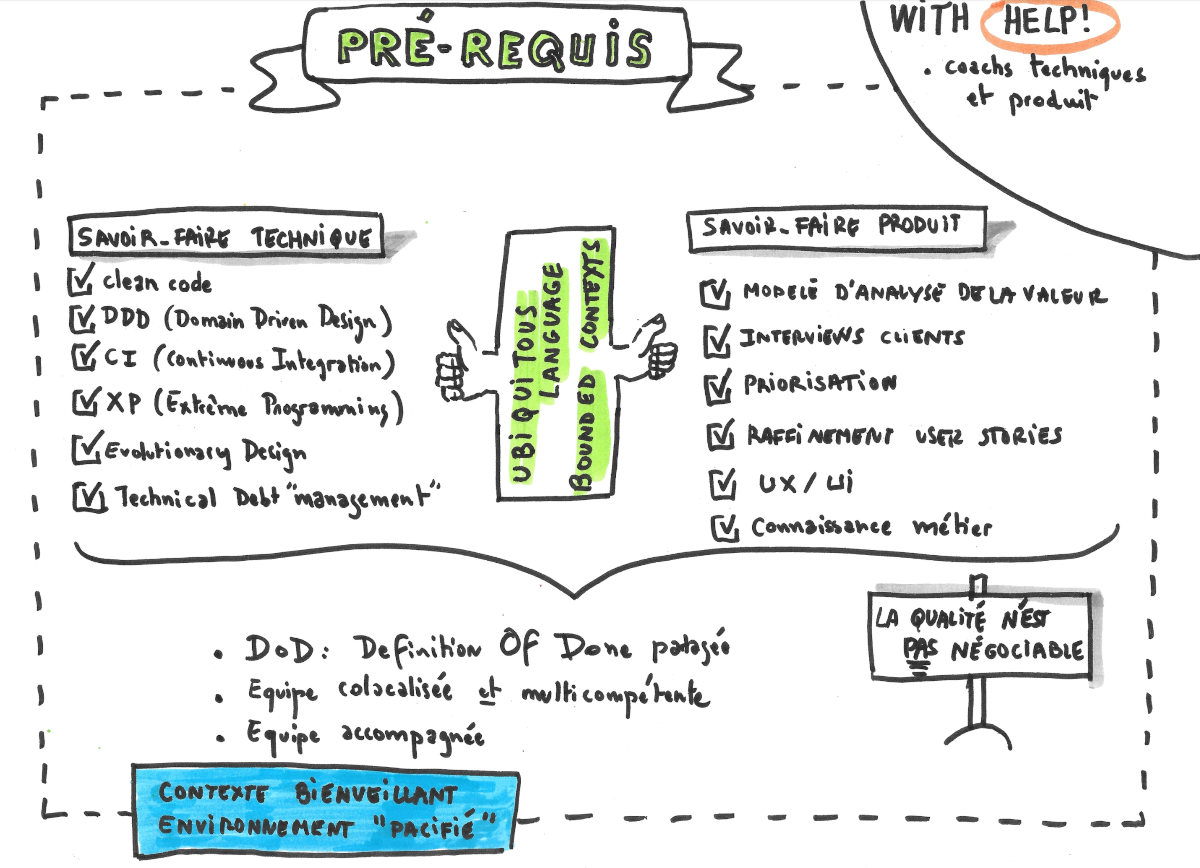 PRÉ-REQUIS
WITH HELP!
• coachs techniques
et produit
SAVOIR-FAIRE TECHNIQUE
clean code
DDD (Domain Driven Design)
CI (Continuous Integration)
XP (Extrême Programming)
Evolutionary Design
Technical Debt "management"
UBIQUITOUS
LANGUAGE
BOUNDED CONTEXTS
SAVOIR-FAIRE PRODUIT
MODELE D'ANALYSE DE LA VALEUR
INTERVIEWS CLIENTS
PRIORISATION
RAFFINEMENT USER STORIES
UX / Ui
Connaissance métier
• DoD: Definition Of Done patagée
• Equipe colacalisée et multicompétente
• Equipe accompagnée
LA QUALITÉ N'EST
PAS NÉGOCIABLE
CONTEXTE BIENVEILLANT
ENVIRONNEMENT "PACIFIÉ"